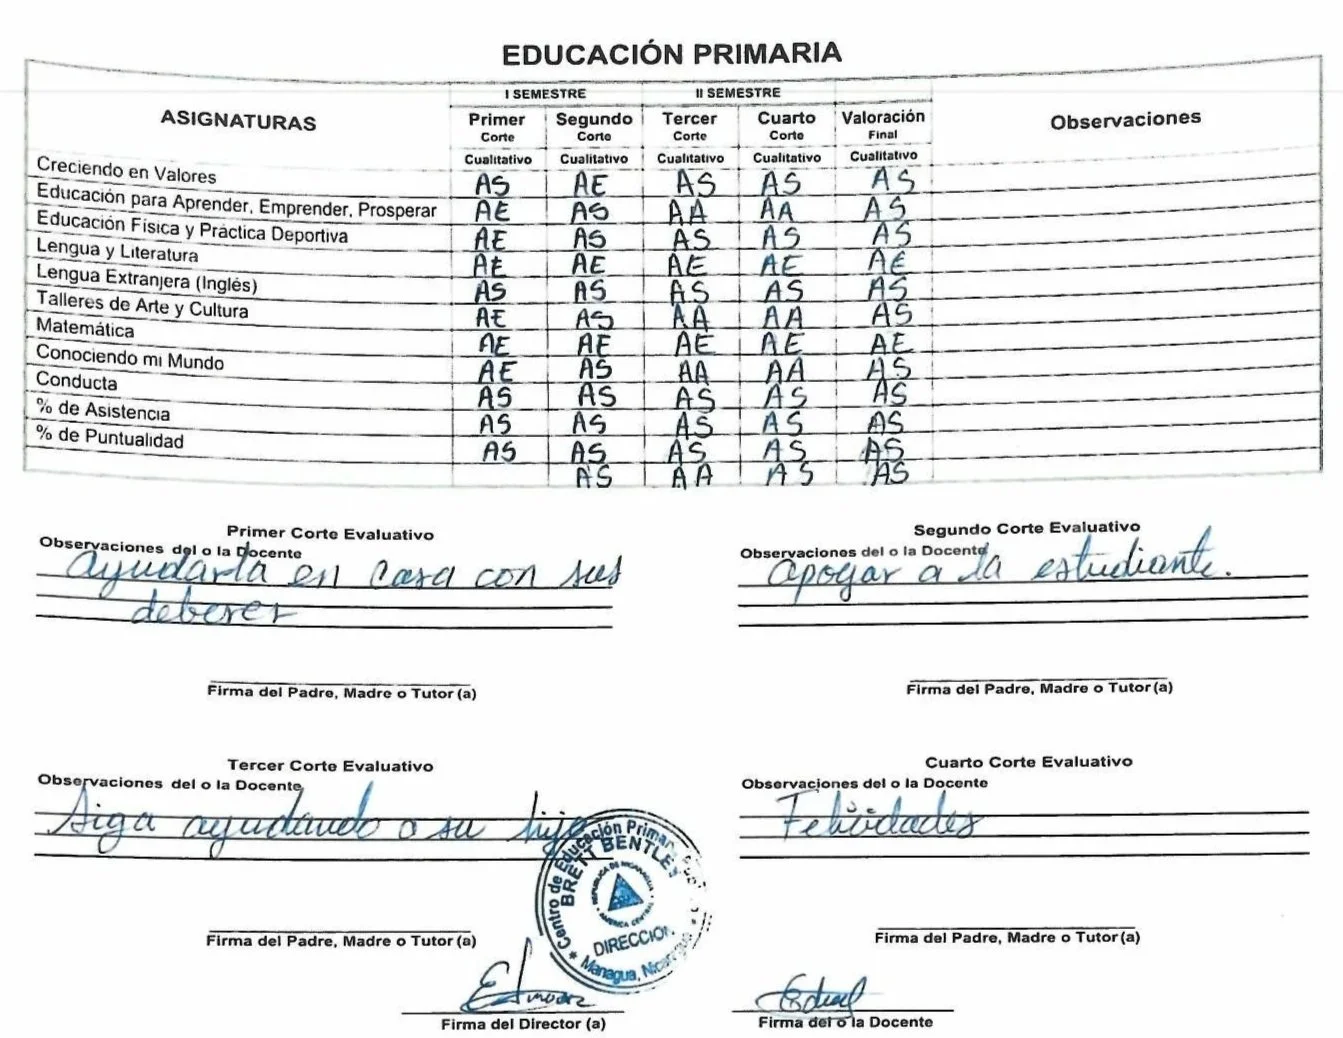 EDUCACIÓN PRIMARIA
ASIGNATURAS I SEMESTRE II SEMESTRE Observaciones
Primer Corte Segundo Corte Tercer Corte Cuarto Corte Valoración Final
Cualitativo Cualitativo Cualitativo Cualitativo Cualitativo
Creciendo en Valores AS AE AS AS AS
Educación para Aprender, Emprender, Prosperar AE AS AA AA AS
Educación Física y Práctica Deportiva AE AS AS AS AS
Lengua y Literatura AE AE AE AE AE
Lengua Extranjera (Inglés) AS AS AS AS AS
Talleres de Arte y Cultura AE AS AA AA AS
Matemática AE AE AE AE AE
Conociendo mi Mundo AE AS AA AA AS
Conducta AS AS AS AS AS
% de Asistencia AS AS AS AS AS
% de Puntualidad AS AS AS AS AS
AS AA AS AS
Primer Corte Evaluativo
Observaciones del o la Docente
ayudarla en casa con sus
deberes
Firma del Padre, Madre o Tutor (a)
Segundo Corte Evaluativo
Observaciones del o la Docente
apoyar a la estudiante.
Firma del Padre, Madre o Tutor (a)
Tercer Corte Evaluativo
Observaciones del o la Docente
Siga ayudando a su hija
Firma del Padre, Madre o Tutor (a)
Cuarto Corte Evaluativo
Observaciones del o la Docente
Felicidades
Firma del Padre, Madre o Tutor (a)
Centro de Educación Primaria
BRETT BENTLEY
REPUBLICA DE NICARAGUA
AMERICA CENTRAL
DIRECCION
Managua, Nicaragua
Firma del Director (a)
Firma del o la Docente